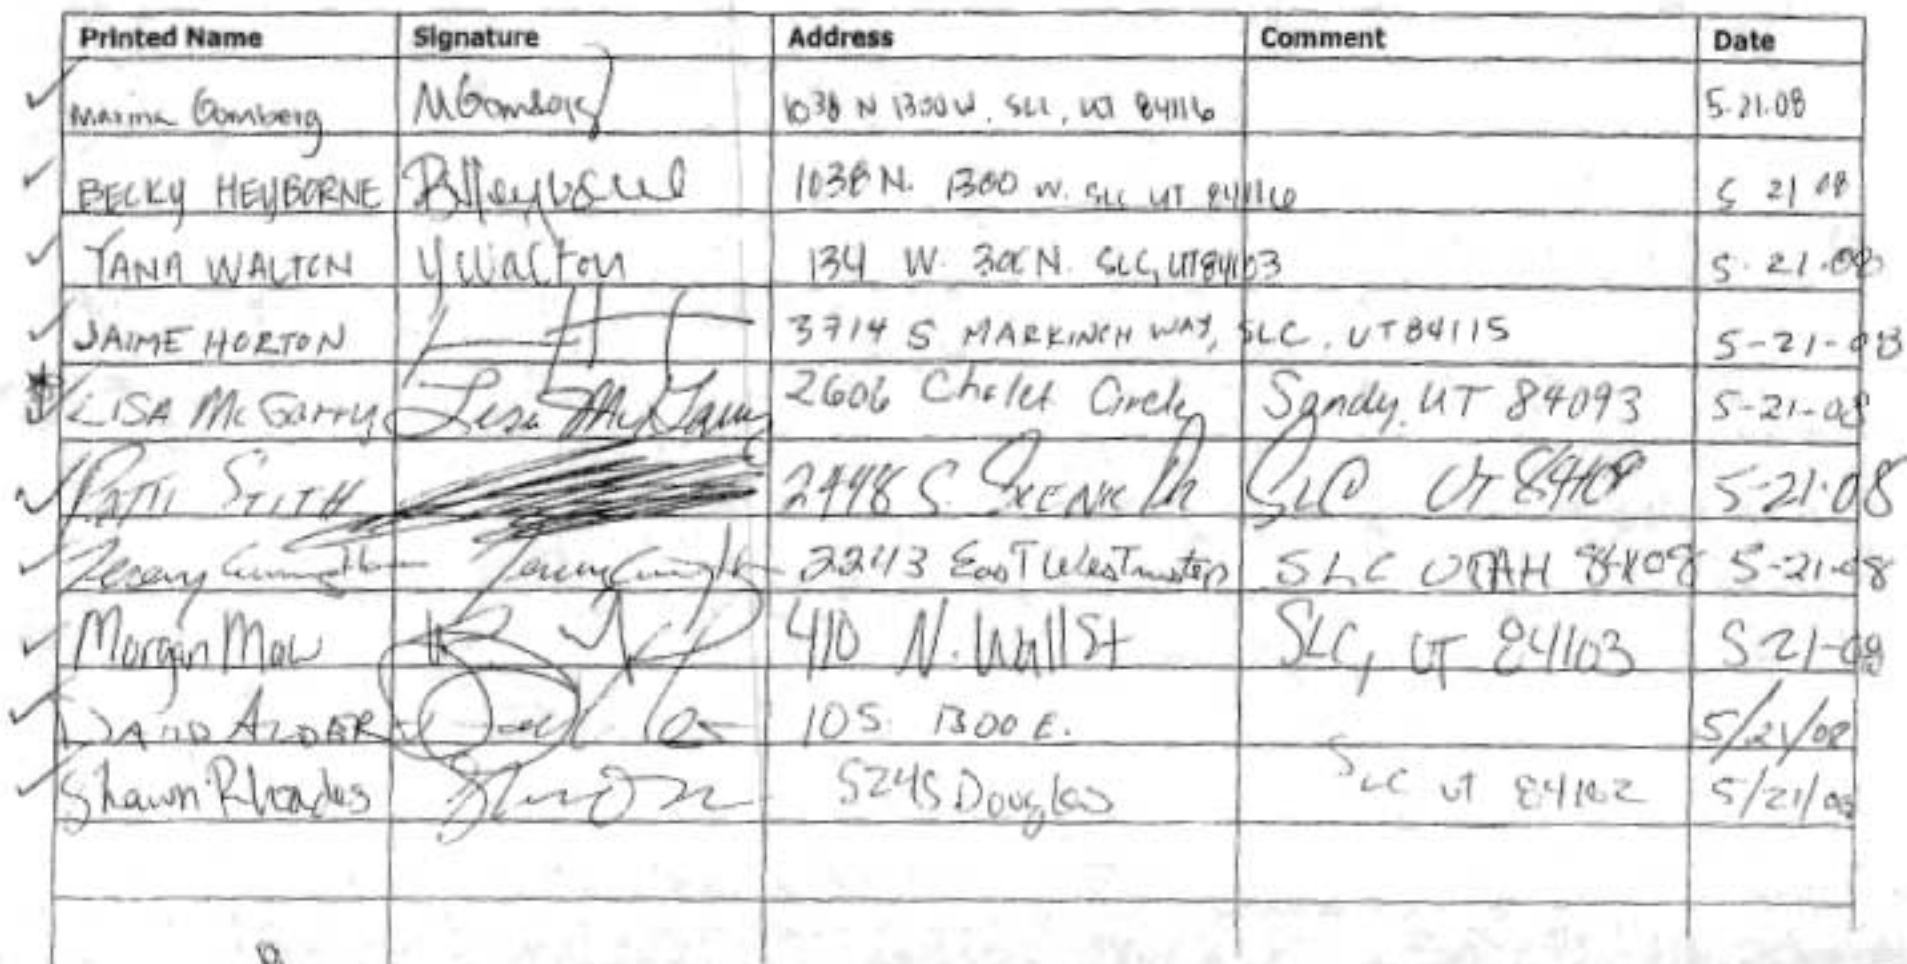 Printed Name Signature Address Comment Date
Marina Gomberg MGomberg 1038 N 1300 W, SLC, UT 84116 5.21.08
BECKY HEYBORNE BHeyborne 1038 N. 1300 W. SLC UT 84116 5 21 08
YANA WALTON YWalton 134 W. 300 N. SLC, UT 84103 5.21.08
JAIME HORTON 3714 S MARKINCH WAY, SLC, UT 84115 5-21-08
LISA McGarry Lisa McGarry 2606 Chalet Circle Sandy, UT 84093 5-21-08
PATTI STITH 2448 S. SLC UT 5-21-08
2243 East Westminster SLC UTAH 84108 5-21-08
Morgan Maw 410 N. Wall St SLC, UT 84103 5-21-08
DAVID ALDER 10 S. 1300 E. 5/21/08
Shawn Rhoades Douglas SLC UT 84102 5/21/08